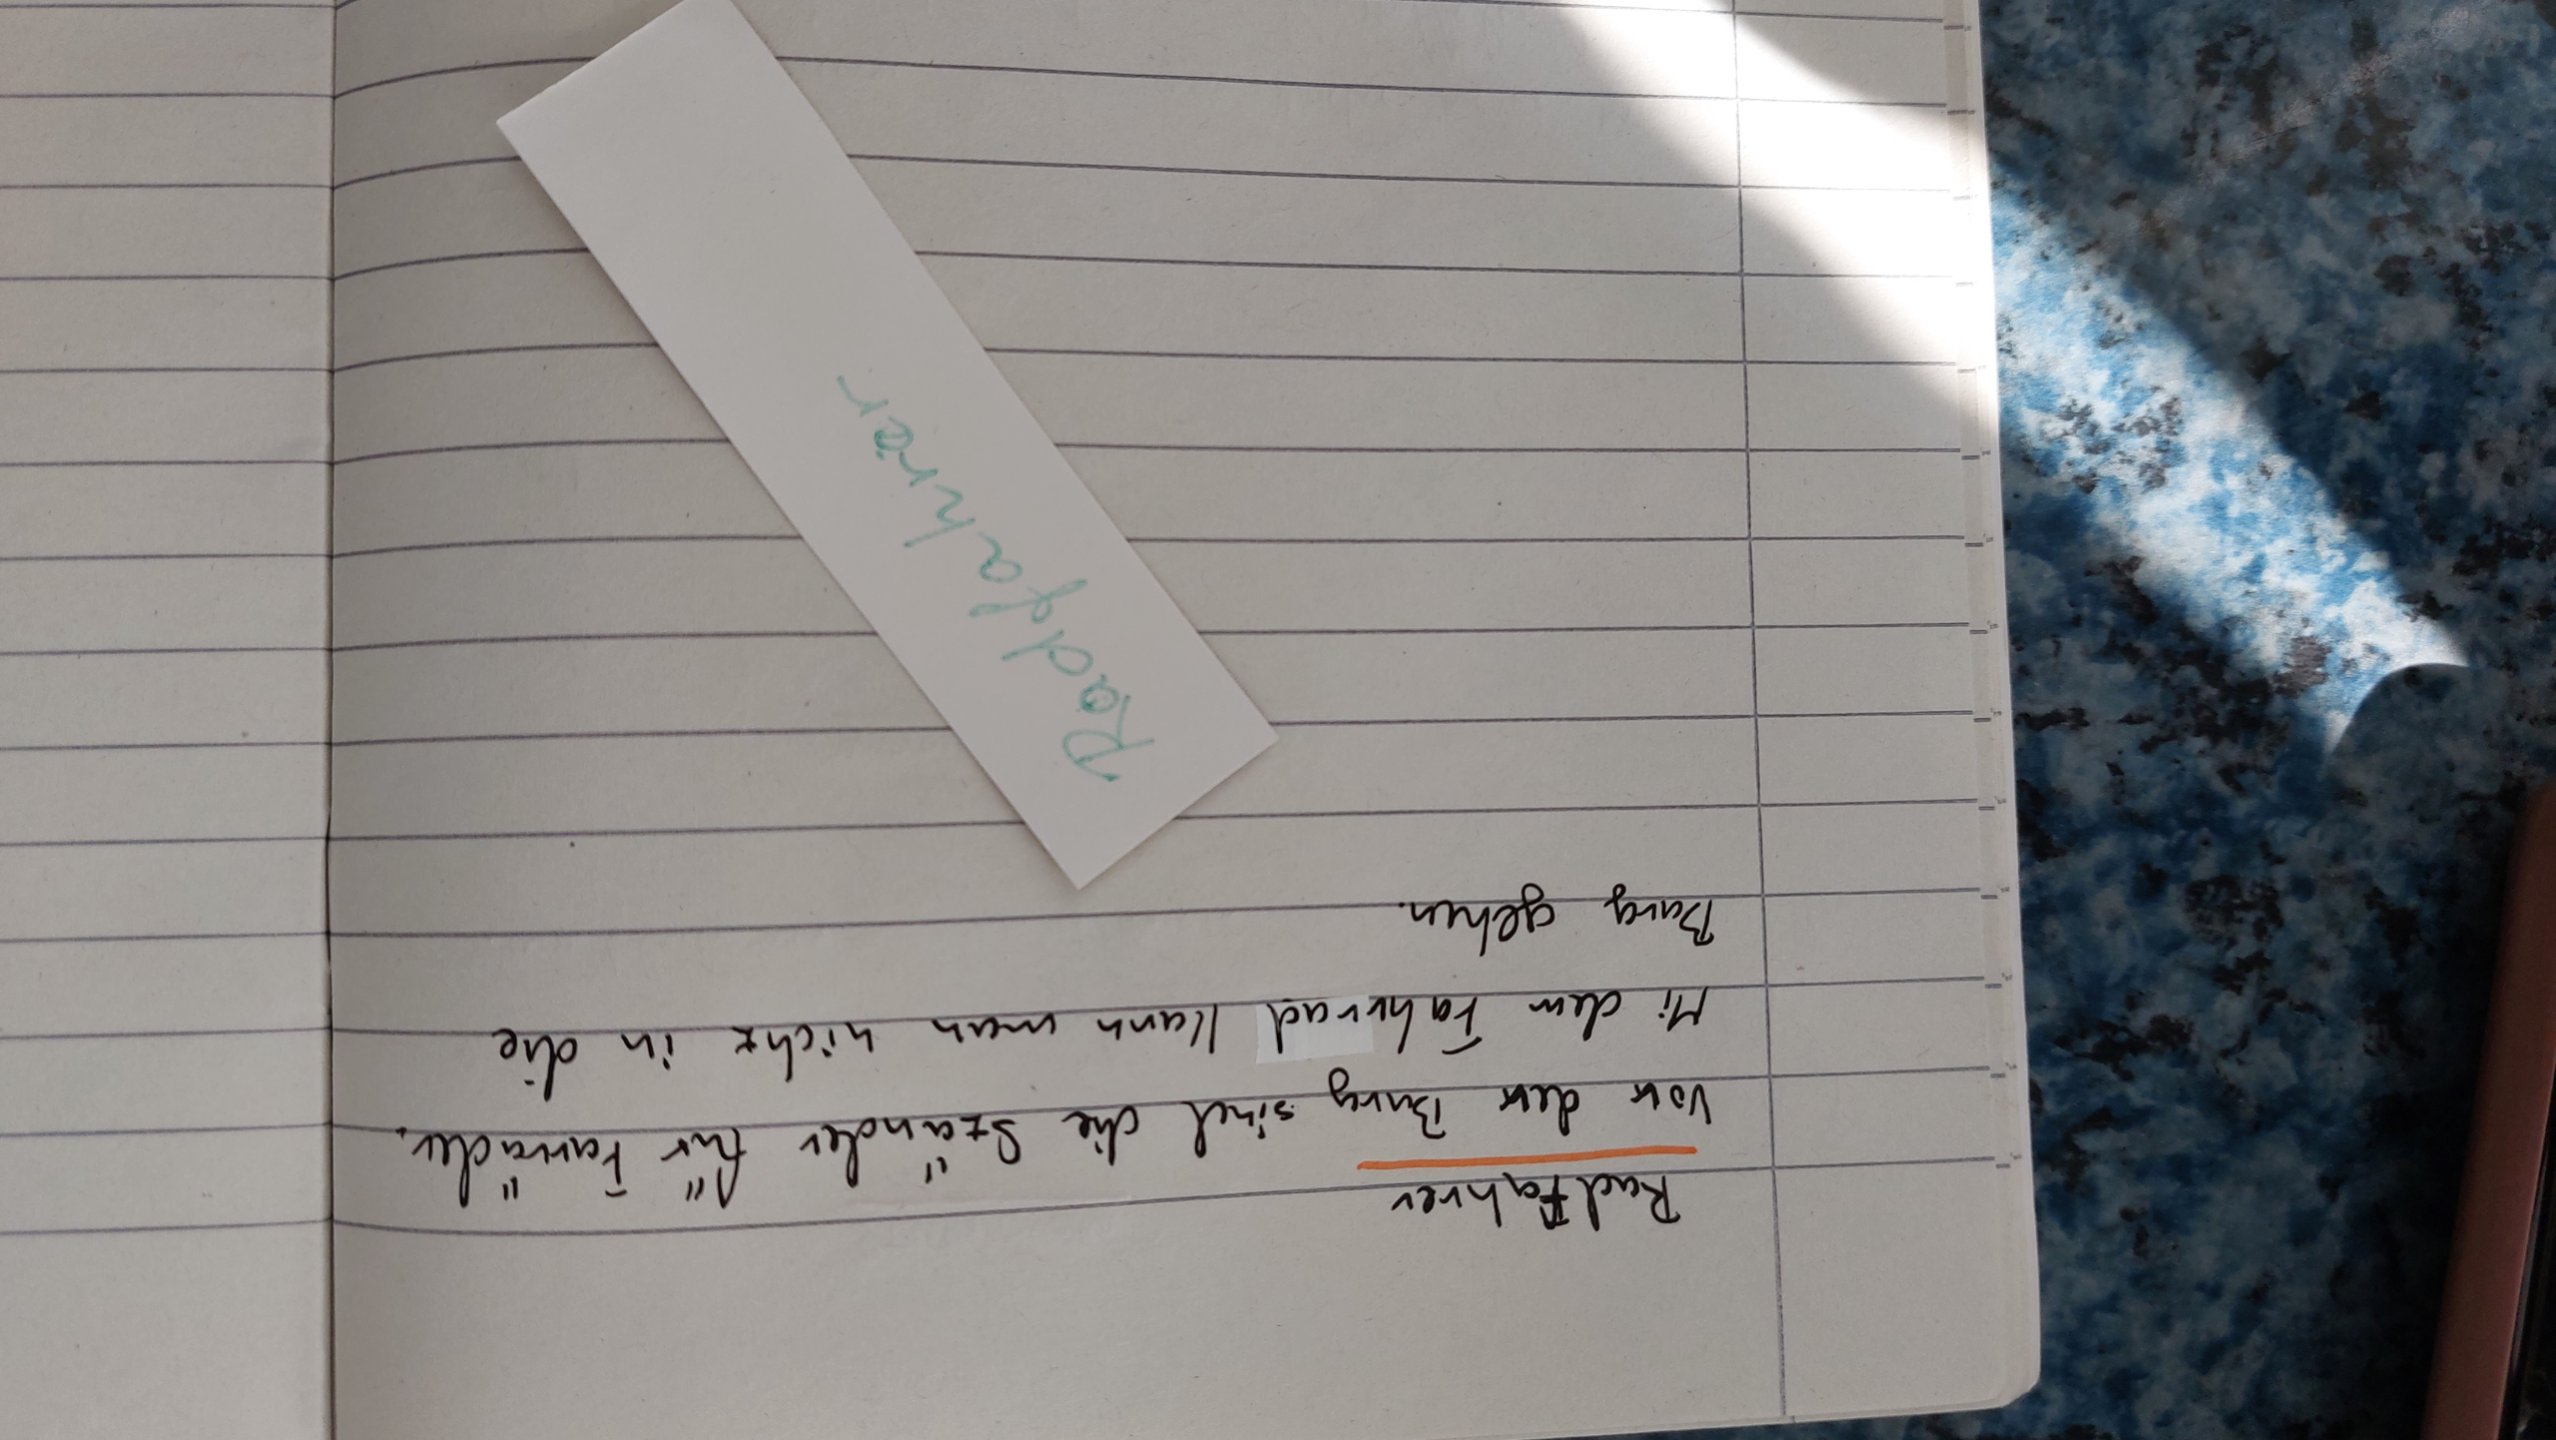 Radfahrer
Vor der Burg sind die Ständer für Farräder.
Mi dem Fahrrad kann man nicht in die
Burg gehen.
Radfahrer